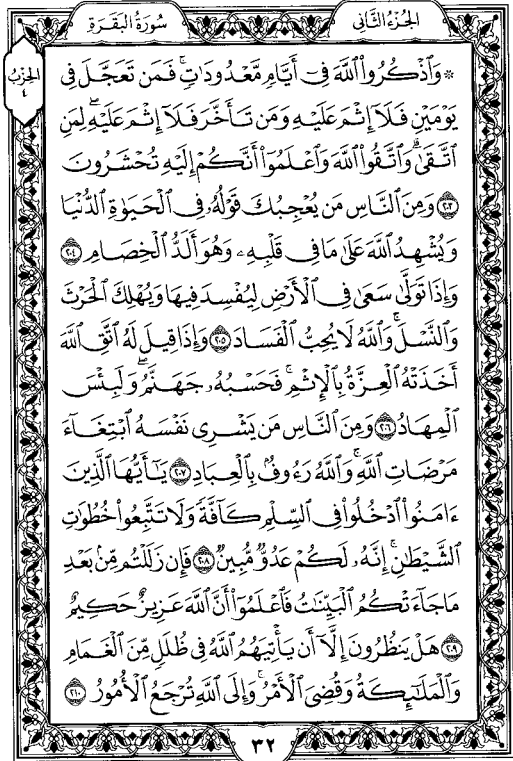 سُورَةُ البَقَرَةِ
الجُزءُ الثَّانِى
الحِزْبُ
٤
* وَٱذْكُرُوا۟ ٱللَّهَ فِىٓ أَيَّامٍ مَّعْدُودَٰتٍ ۚ فَمَن تَعَجَّلَ فِى
يَوْمَيْنِ فَلَآ إِثْمَ عَلَيْهِ وَمَن تَأَخَّرَ فَلَآ إِثْمَ عَلَيْهِ ۚ لِمَنِ
ٱتَّقَىٰ ۗ وَٱتَّقُوا۟ ٱللَّهَ وَٱعْلَمُوٓا۟ أَنَّكُمْ إِلَيْهِ تُحْشَرُونَ
٢٠٣ وَمِنَ ٱلنَّاسِ مَن يُعْجِبُكَ قَوْلُهُۥ فِى ٱلْحَيَوٰةِ ٱلدُّنْيَا
وَيُشْهِدُ ٱللَّهَ عَلَىٰ مَا فِى قَلْبِهِۦ وَهُوَ أَلَدُّ ٱلْخِصَامِ ٢٠٤
وَإِذَا تَوَلَّىٰ سَعَىٰ فِى ٱلْأَرْضِ لِيُفْسِدَ فِيهَا وَيُهْلِكَ ٱلْحَرْثَ
وَٱلنَّسْلَ ۗ وَٱللَّهُ لَا يُحِبُّ ٱلْفَسَادَ ٢٠٥ وَإِذَا قِيلَ لَهُ ٱتَّقِ ٱللَّهَ
أَخَذَتْهُ ٱلْعِزَّةُ بِٱلْإِثْمِ ۚ فَحَسْبُهُۥ جَهَنَّمُ ۚ وَلَبِئْسَ
ٱلْمِهَادُ ٢٠٦ وَمِنَ ٱلنَّاسِ مَن يَشْرِى نَفْسَهُ ٱبْتِغَآءَ
مَرْضَاتِ ٱللَّهِ ۗ وَٱللَّهُ رَءُوفٌۢ بِٱلْعِبَادِ ٢٠٧ يَٰٓأَيُّهَا ٱلَّذِينَ
ءَامَنُوا۟ ٱدْخُلُوا۟ فِى ٱلسِّلْمِ كَآفَّةً وَلَا تَتَّبِعُوا۟ خُطُوَٰتِ
ٱلشَّيْطَٰنِ ۚ إِنَّهُۥ لَكُمْ عَدُوٌّ مُّبِينٌ ٢٠٨ فَإِن زَلَلْتُم مِّنۢ بَعْدِ
مَا جَآءَتْكُمُ ٱلْبَيِّنَٰتُ فَٱعْلَمُوٓا۟ أَنَّ ٱللَّهَ عَزِيزٌ حَكِيمٌ
٢٠٩ هَلْ يَنظُرُونَ إِلَّآ أَن يَأْتِيَهُمُ ٱللَّهُ فِى ظُلَلٍ مِّنَ ٱلْغَمَامِ
وَٱلْمَلَٰٓئِكَةُ وَقُضِىَ ٱلْأَمْرُ ۚ وَإِلَى ٱللَّهِ تُرْجَعُ ٱلْأُمُورُ ٢١٠
٣٢